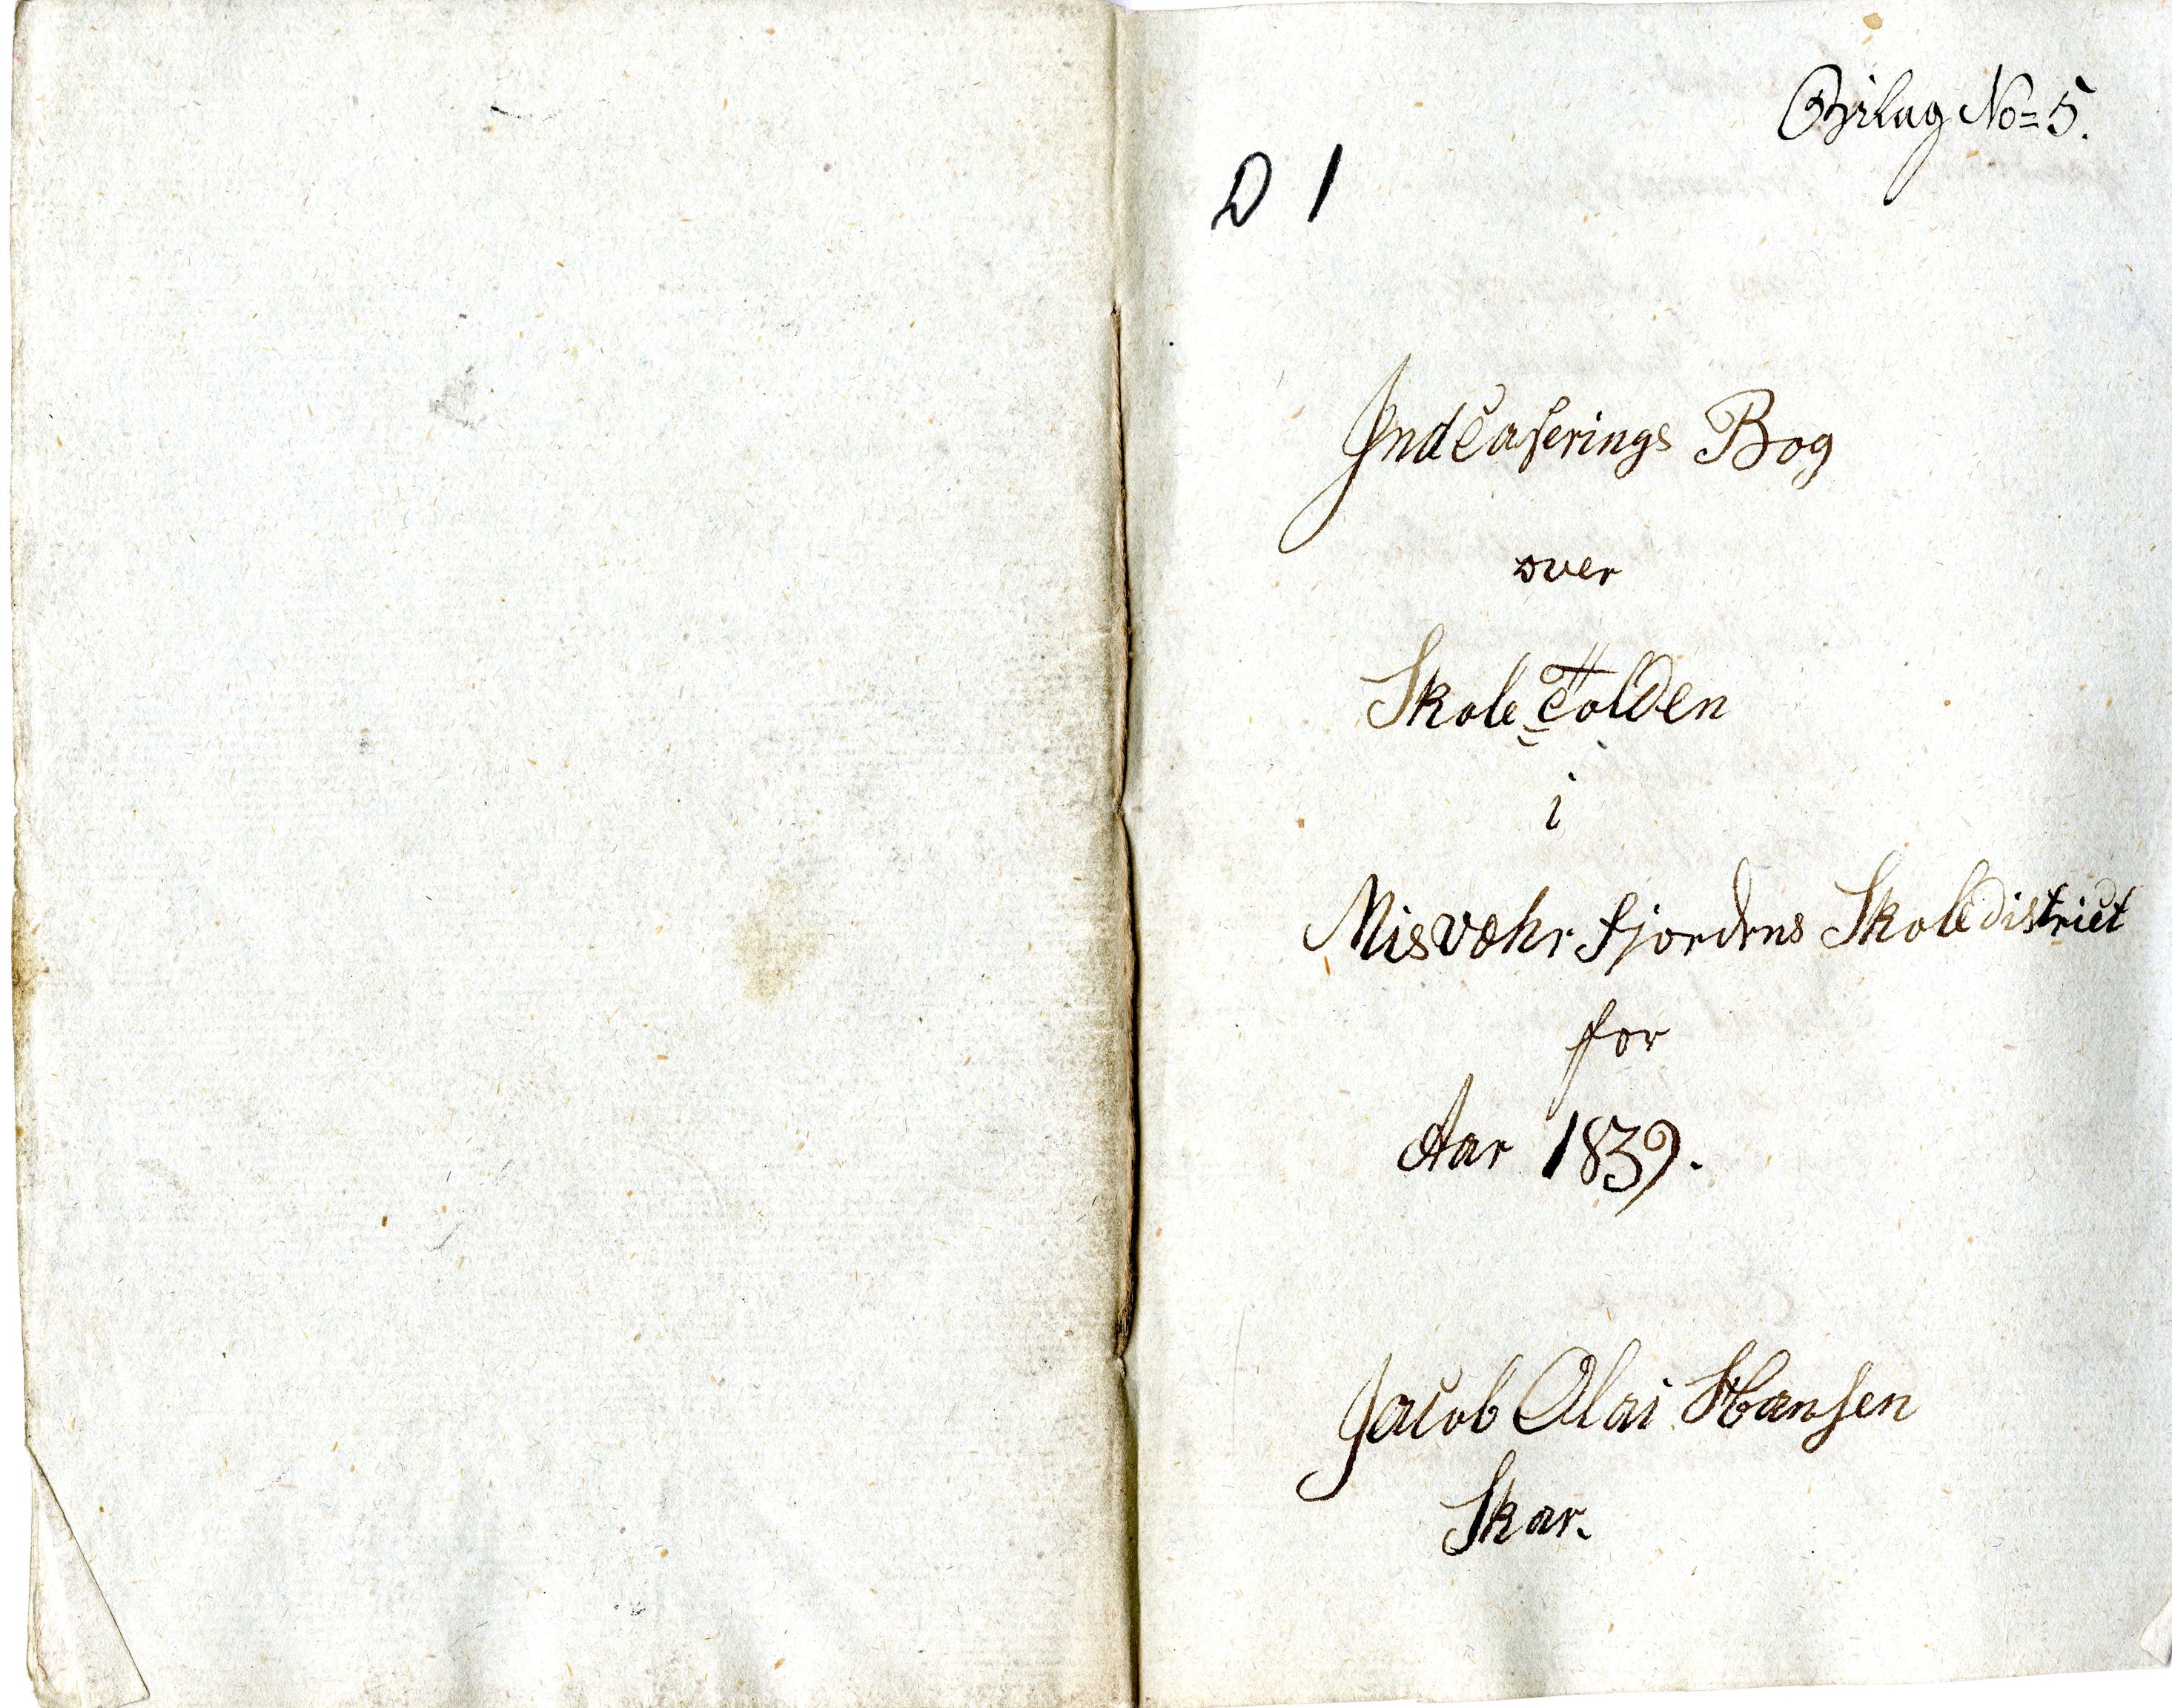 Bilag No= 5.
D 1
Indcaserings Bog
over
Skole Tolden
i
Misvæhrfjordens Skoledistrict
for
Aar 1839.
Jacob Olai Hansen
Skar.